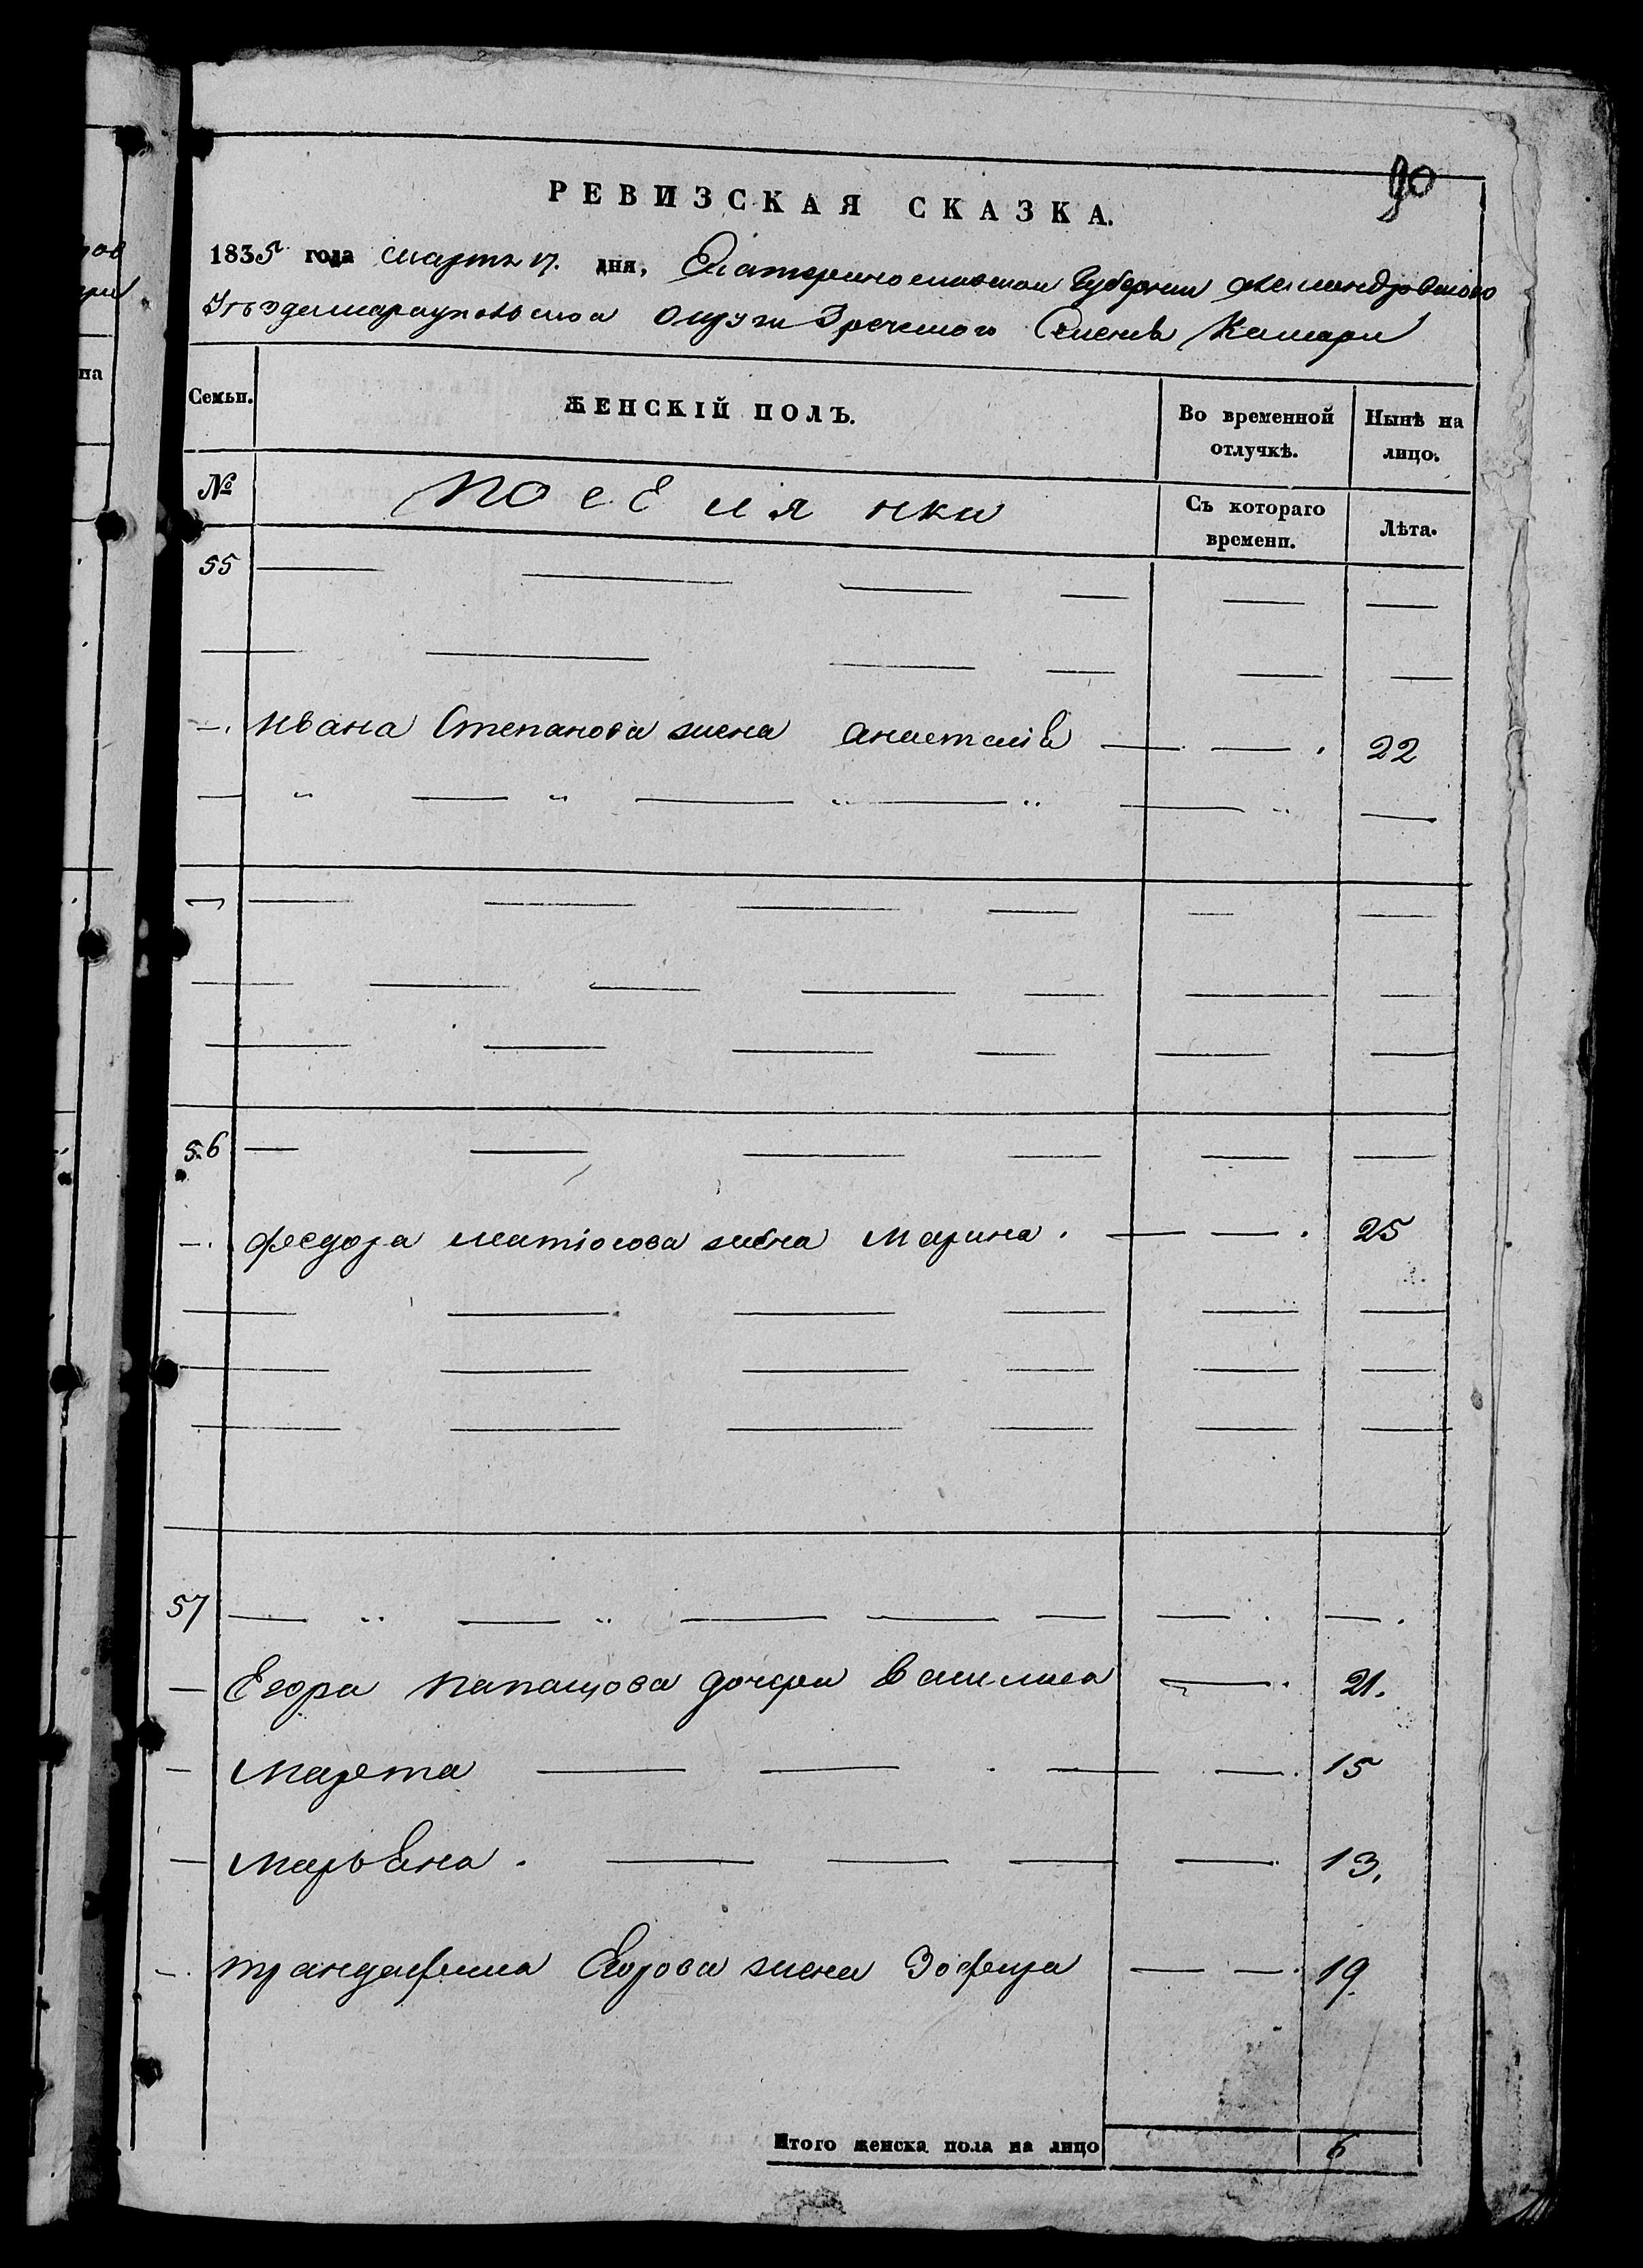 90
РЕВИЗСКАЯ СКАЗКА.
1835 года Марта 17. дня, Екатеринославской Губернии Александровского
Уезда Мариупольского Округа Греческого Селения Камари
Семьи. ЖЕНСКІЙ ПОЛЪ. Во временной отлучкѣ. Нынѣ на лицо.
№ ПОСЕЛЯНКИ Съ котораго времени. Лѣта.
55
Ивана Степанова жена Анастасія 22
56
Федора Матіосова жена Марина. 25
57
Егора Папацова дочери Василиса 21.
Марета 15
Марьена. 13.
Трандафила Егорова жена Зофица 19
Итого женска пола на лицо 6